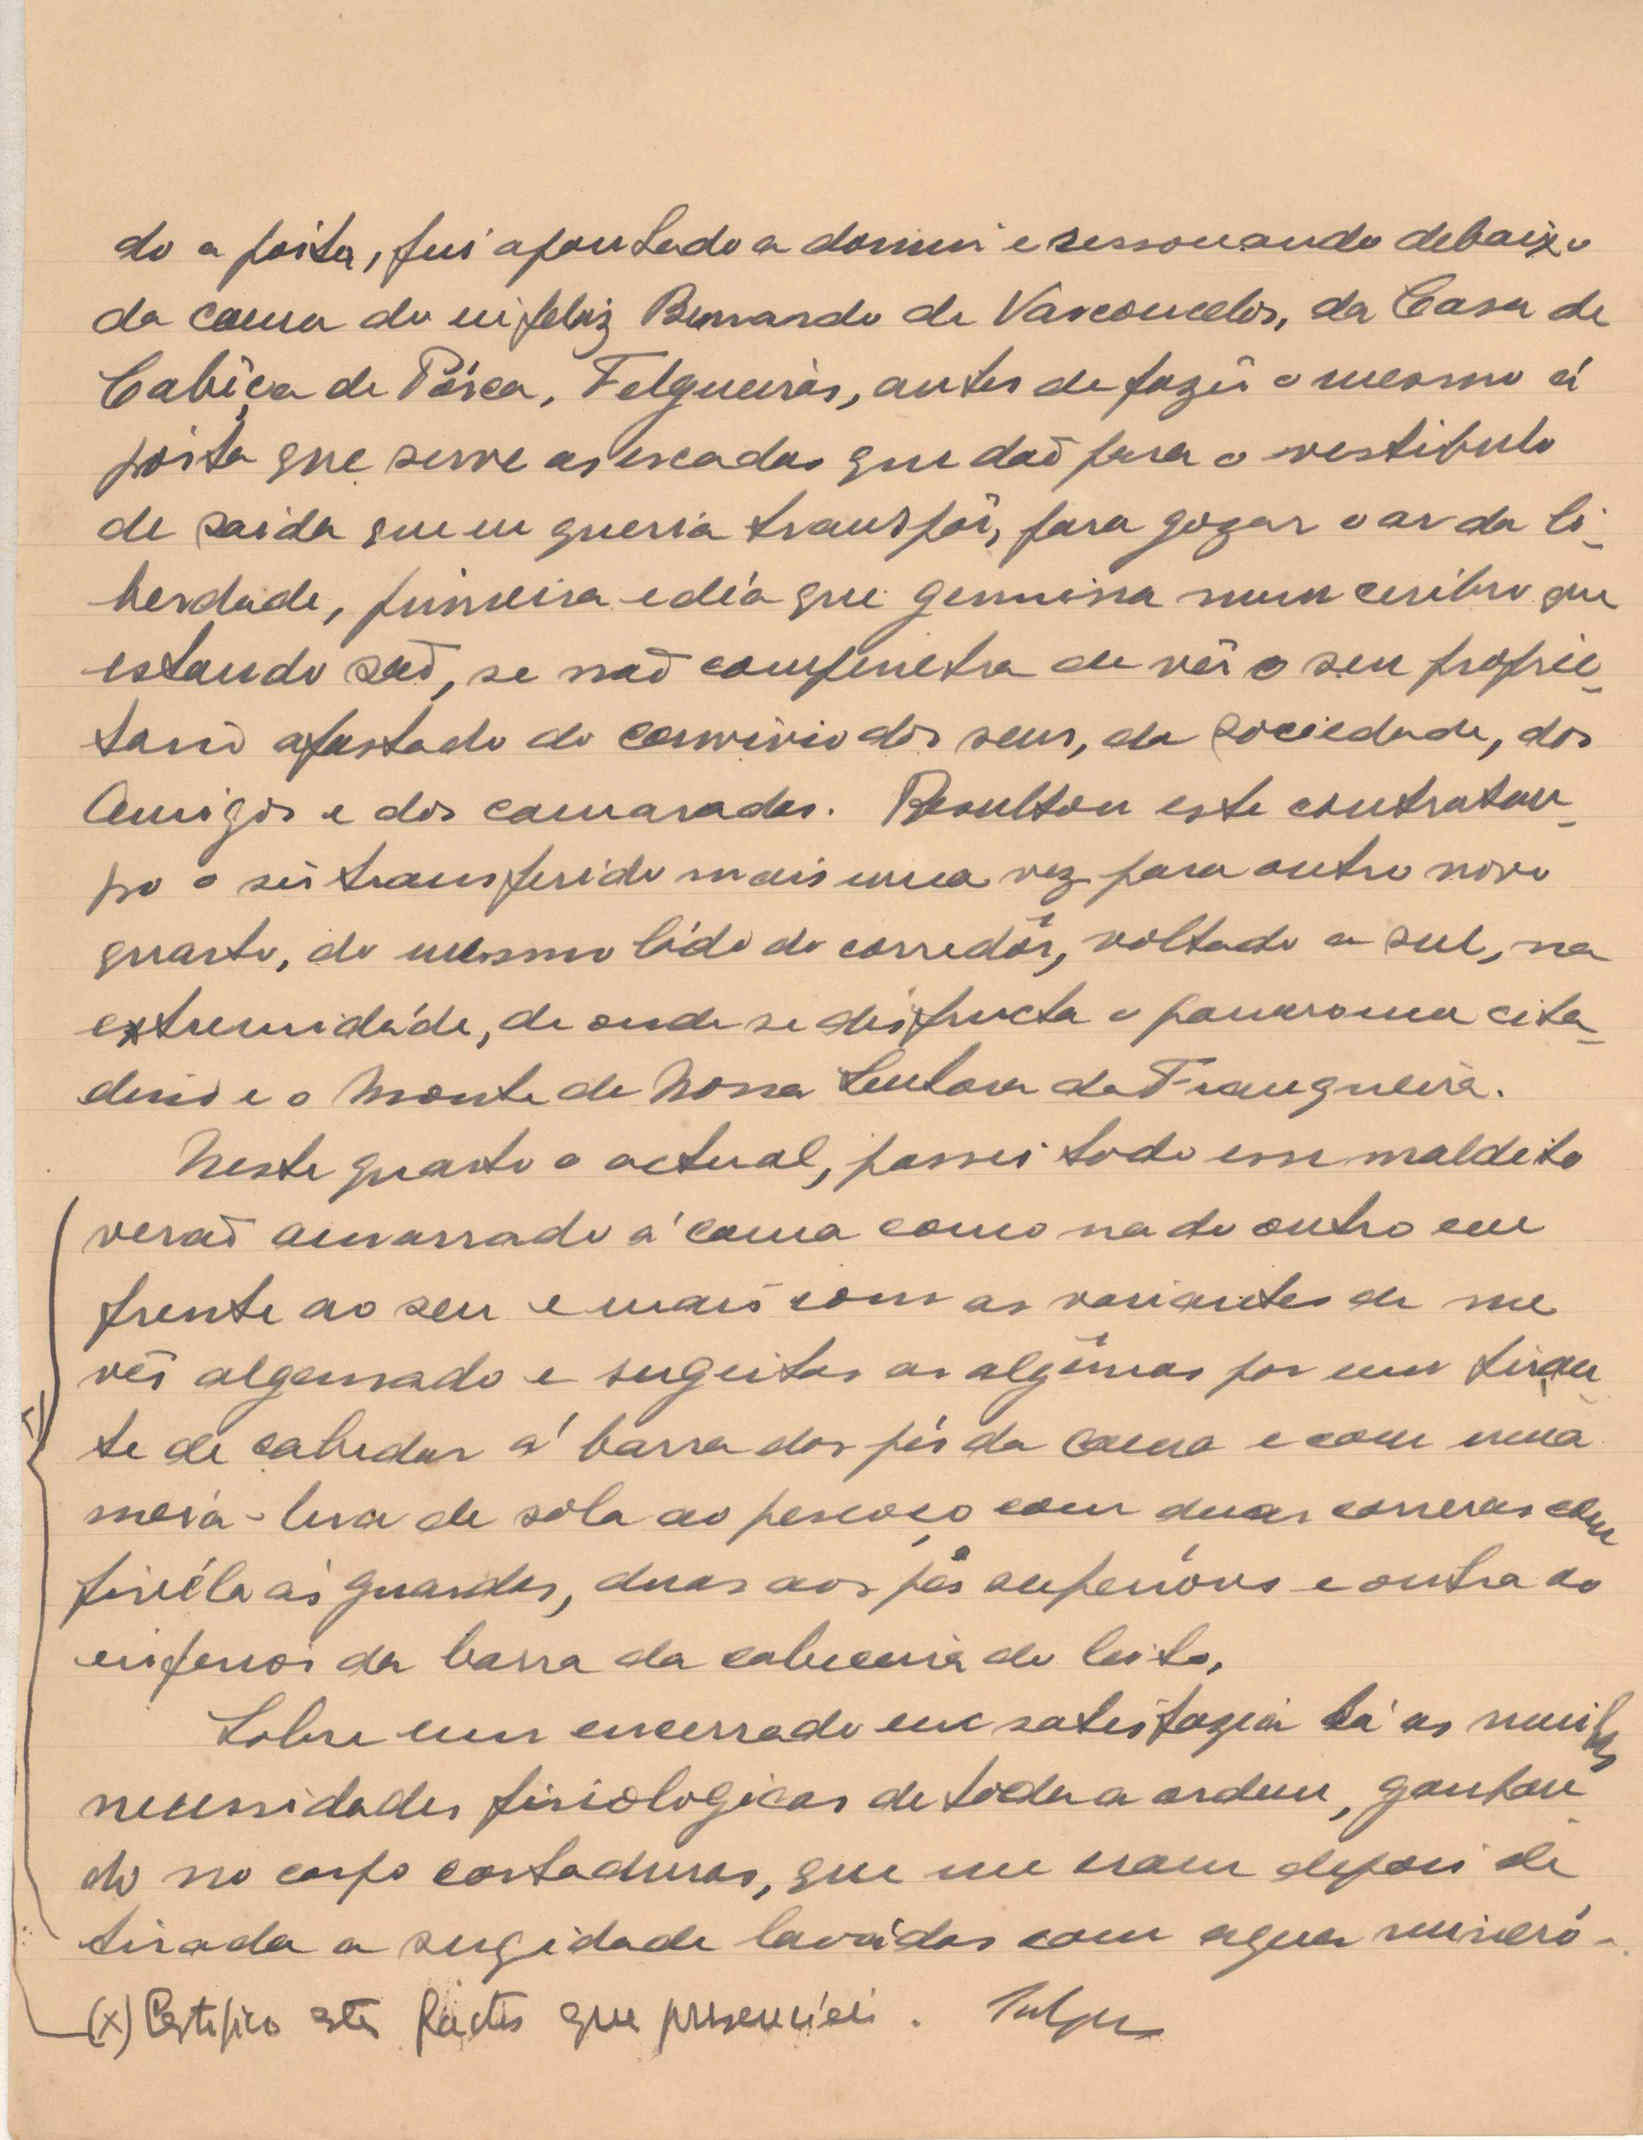 do a porta, fui apontado a dormir e ressonando debaixo
da cama do infeliz Bernardo de Vasconcelos, da Casa de
Cabêça de Pórca, Felgueiras, antes de fazêr o mesmo á
porta que serve as escadas que daõ para o vestibulo
de saida que eu queria transpôr, para gozar o ar da li-
berdade, primeira edéa que germina num cerebro que
estando saõ, se naõ compenetra de vêr o seu proprie-
tario afastado do convivio dos seus, da sociedade, dos
Amigos e dos camaradas. Resultou este contratem-
po o sêr transferido mais uma vez para outro novo
quarto, do mesmo ládo do corredôr, voltado a sul, na
extremidáde, de onde se disfructa o panaroma cita-
dino e o Monte de Nossa Senhora da Franqueira.
Neste quarto o actual, passei todo esse maldito
veraõ amarrado á cama como na do outro em
frente ao seu e mais com as variantes de me
vêr algemado e sugeitas as algêmas por um tiran-
te de cabedar á barra dos pés da cama e com uma
meia-lua de sola ao pescoço com duas correias com
fivéla ás guardas, duas aos pés superiórs e outra ao
inferior da barra da cabeceira do leito.
Sobre um encerrado eu satisfazia lá as minhas
necessidades fisiologicas de toda a ordem, ganhan-
do no corpo cortaduras, que me eram depois de
tirada a sugidade lavádas com agua mineró-
(x) Certifico estes factos que presenciei.